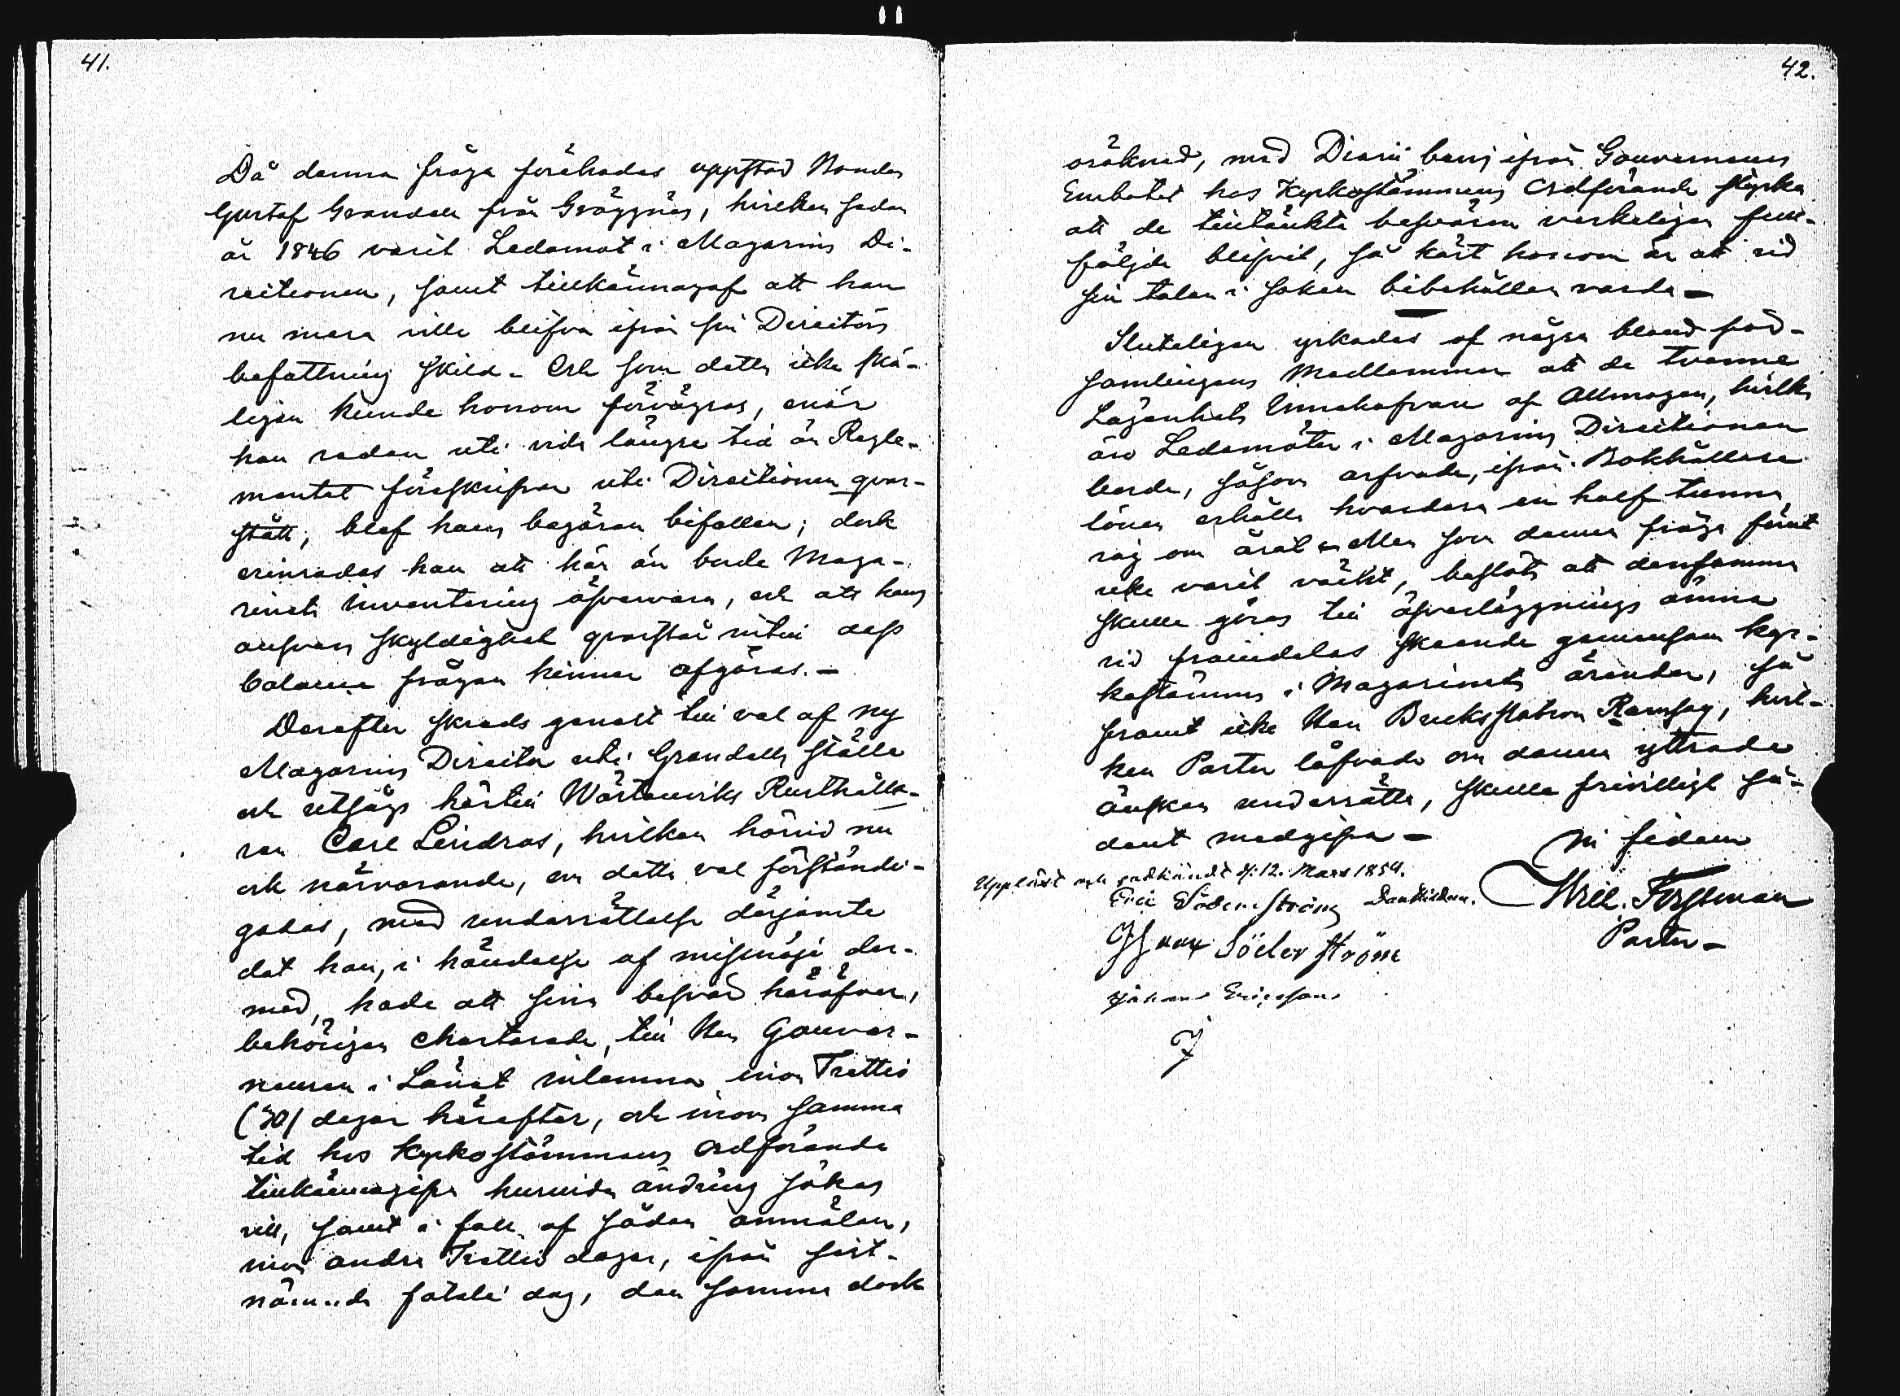 41.
Då denna fråga förehades uppstod Bonden
Gustaf Grandell från Gräggnäs, hvilken sedan
år 1846 varit Ledamot i Magasins Di-
rectionen, samt tillkännagaf att han
nu mera ville blifva ifrån sin Directörs
befattning skild. Och som detta icke skä-
ligen kunde honom förvägras, enär
han redan uti vida längre tid än Regle-
mentet föreskrifver uti Directionen qvar-
stått, blef hans begäran bifallen; dock
erinrades han att här än borde Maga-
sinets inventering öfvervara, och att hans
ansvars skyldighet qvarstår intill dess
berörda frågan hinner afgöras. –
Derefter skreds genast till val af ny
Magasins Director uti Grandells ställe
och utsågs härtill Wårtanviks Rusthålla-
ren Carl Lindros, hvilken härvid nu
och närvarande, om detta val förständi-
gades, med underrättelse derjämte
det han, i händelse af missnöje der-
med, hade att sina besvär häröfver,
behörigen Charterade, till Herr Gouver-
neuren i Länet inlemna inom Trettio
(30) dagar härefter, och inom samma
tid hos Kyrkostämmans Ordförande
tillkännagifva huruvida ändring sökas
vill, samt i fall af sådan anmälan,
inom andra Trettio dagar, ifrån sist-
nämnde fatalie dag, den samma dock
42.
oräknad, med Diarii bevis ifrån Gouverneurs
Embetet hos Kyrkostämmans Ordförande styrka
att de tilltänkta besvären verkeligen full-
följde blifvit, så kärt honom är att vid
sin talan i saken bibehållen varda –
Sluteligen yrkades af några bland för-
samlingens Medlemmar att de tvenne
Lägenhets Innehafvare af Allmogen, hvilka
äro Ledamöter i Magasins Directionen
borde, såsom arfvode, ifrån Bokhållare
lönen erhålla hvardera en half tunna
råg om året – Men som denna fråga förut
icke varit väckt, beslöts att densamma
skulle göras till öfverläggnings ämne
vid framdeles skeende gemensam kyr-
kostämma i Magasinets ärenden, så
framt icke Herr Bruks Patron Ramsay, hvil-
ken Pastor låfvade om denna yttrade
önskan underrätta, skulle frivilligt så-
dant medgifva –
In fidem
Wilh. Forssman
Pastor –
Uppläst och godkändt d: 12. Mars 1854.
Eric Söderström
Söderström
Johans Ericsson